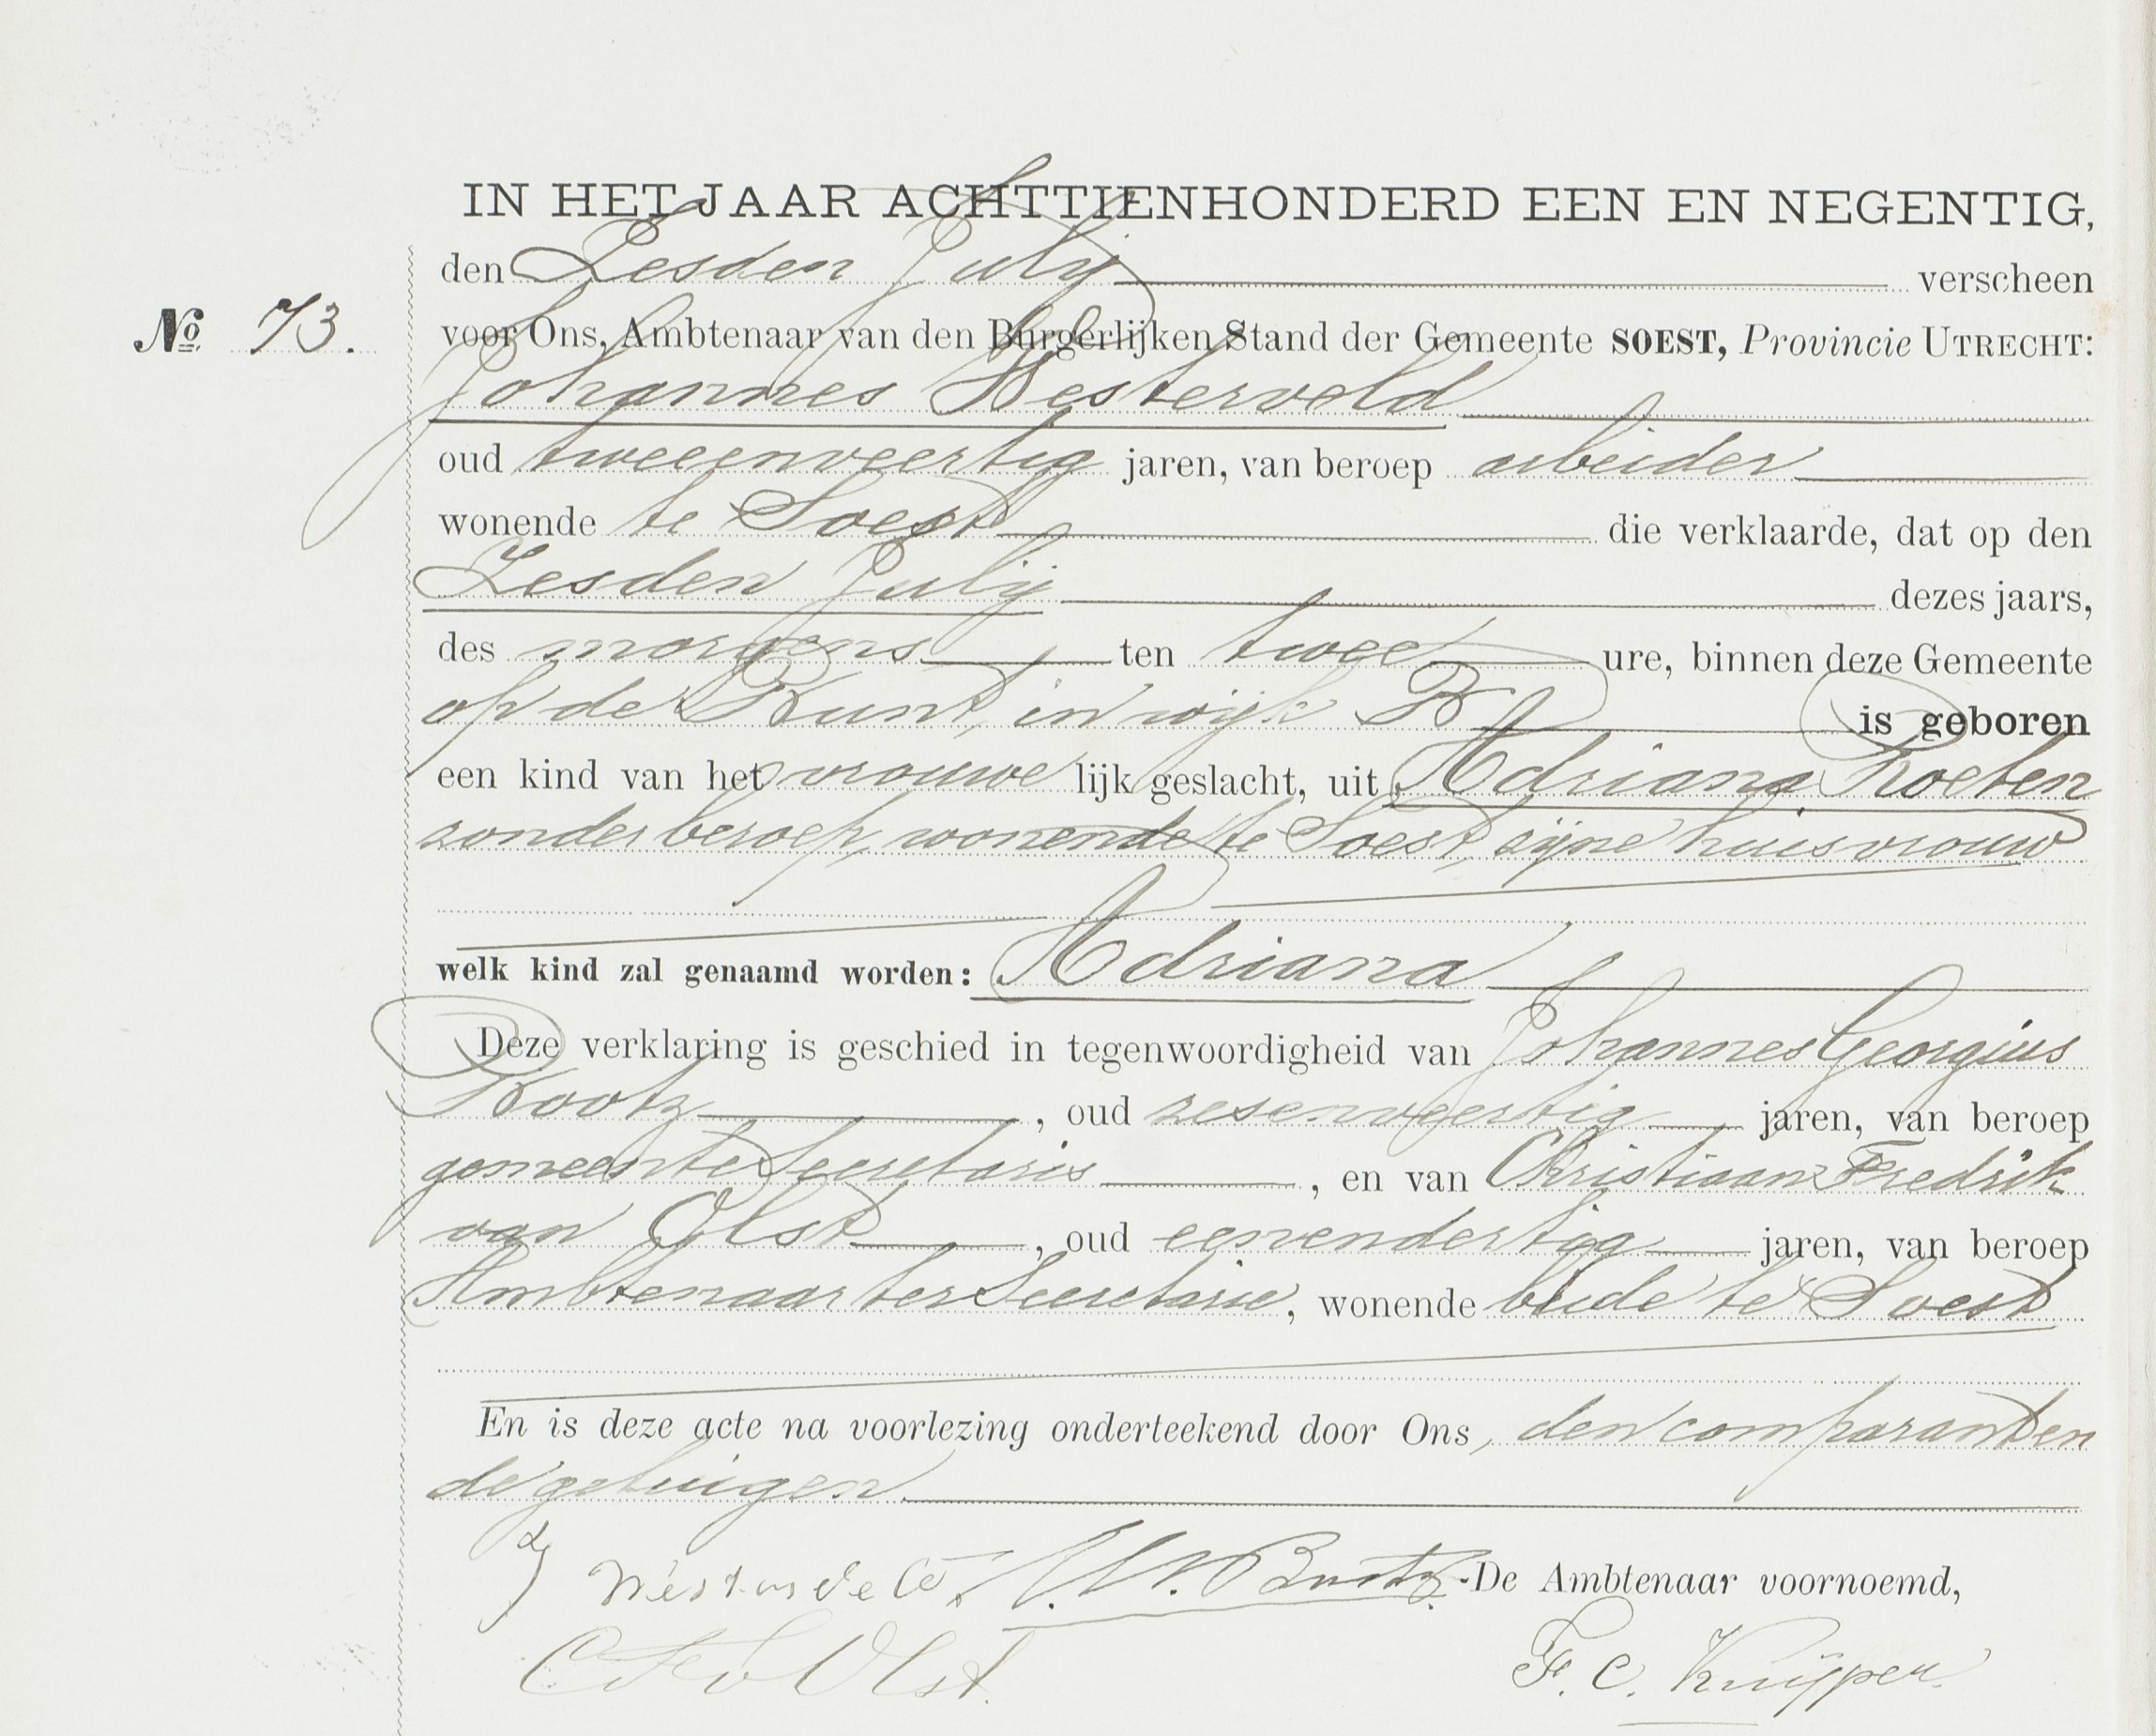 IN HET JAAR ACHTTIENHONDERD EEN EN NEGENTIG,
den Zesden Julij verscheen
No 73.
voor Ons, Ambtenaar van den Burgerlijken Stand der Gemeente SOEST, Provincie UTRECHT:
Johannes Westerveld
oud tweeenveertig jaren, van beroep arbeider
wonende te Soest die verklaarde, dat op den
Zesden Julij dezes jaars,
des morgens ten twee ure, binnen deze Gemeente
op de Kunt, in wijk B is geboren
een kind van het vrouwe lijk geslacht, uit Adriana Roeten
zonder beroep, wonende te Soest, zijne huisvrouw
welk kind zal genaamd worden: Adriana
Deze verklaring is geschied in tegenwoordigheid van Johannes Georgius
, oud zesenveertig jaren, van beroep
gemeente Secretaris , en van Christiaan Fredrik
van Olst , oud eenendertig jaren, van beroep
Ambtenaar ter Secretarie, wonende beide te Soest
En is deze acte na voorlezing onderteekend door Ons, den comparant en
de getuigen
De Ambtenaar voornoemd,
C F v Olst.
F. C. Kuijper.